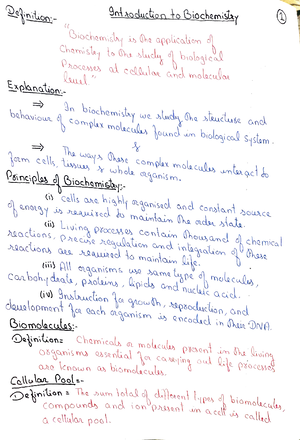 Introduction to Biochemistry
1
Definition:-
"Biochemistry is the application of
Chemistry to the study of biological
Processes at cellular and molecular
level"
Explanation:-
⇒ In biochemistry we study the structure and
behaviour of complex molecules found in biological system.
&
⇒ The ways these complex molecules interact to
form cells, tissues & whole organism.
Principles of Biochemistry:-
(i) Cells are highly organised and constant source
of energy is required to maintain the oder state.
(ii) Living processes contain thousand of chemical
reactions, precise regulation and integration of these
reactions are required to maintain life.
(iii) All organisms use same type of molecules,
carbohydrate, proteins, lipids and nucleic acid.
(iv) Instruction for growth, reproduction, and
development for each organism is encoded in their DNA.
Biomolecules:-
Definition= Chemicals or molecules present in the living
organisms essential for carrying out life processes
are known as biomolecules.
Cellular Pool:-
Definition= The sum total of different types of biomolecules,
compounds and ion present in a cell is called
a cellular pool.